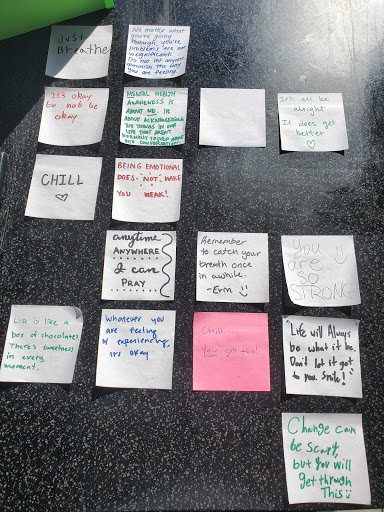 Just
Breathe
No matter what
you're going
through, you're
problems are not
insignificant.
Do not let anyone
diminish the way
you are feeling.
It's okay
to not be
okay.
MENTAL HEALTH
AWARENESS IS
ABOUT ME. IS
ABOUT ACKNOWLEDGING
THE THINGS IN OUR
LIFE THAT AREN'T
NORMALLY
INTO CONVERSATION
It'll all be
alright
It does get
better
CHILL
BEING EMOTIONAL
DOES NOT MAKE
YOU WEAK!
anytime
ANYWHERE
& I can
PRAY
Remember
to catch your
breath once
in awhile.
-Erm
You
are
SO
STRONG
Life is like a
box of chocolates.
There's sweetness
in every
moment.
Whatever you
are feeling
or experiencing,
it's okay
Chill..
You got this!
Life will Always
be what it be.
Don't let it get
to you. Smile!
Change can
be scary,
but you will
get through
This